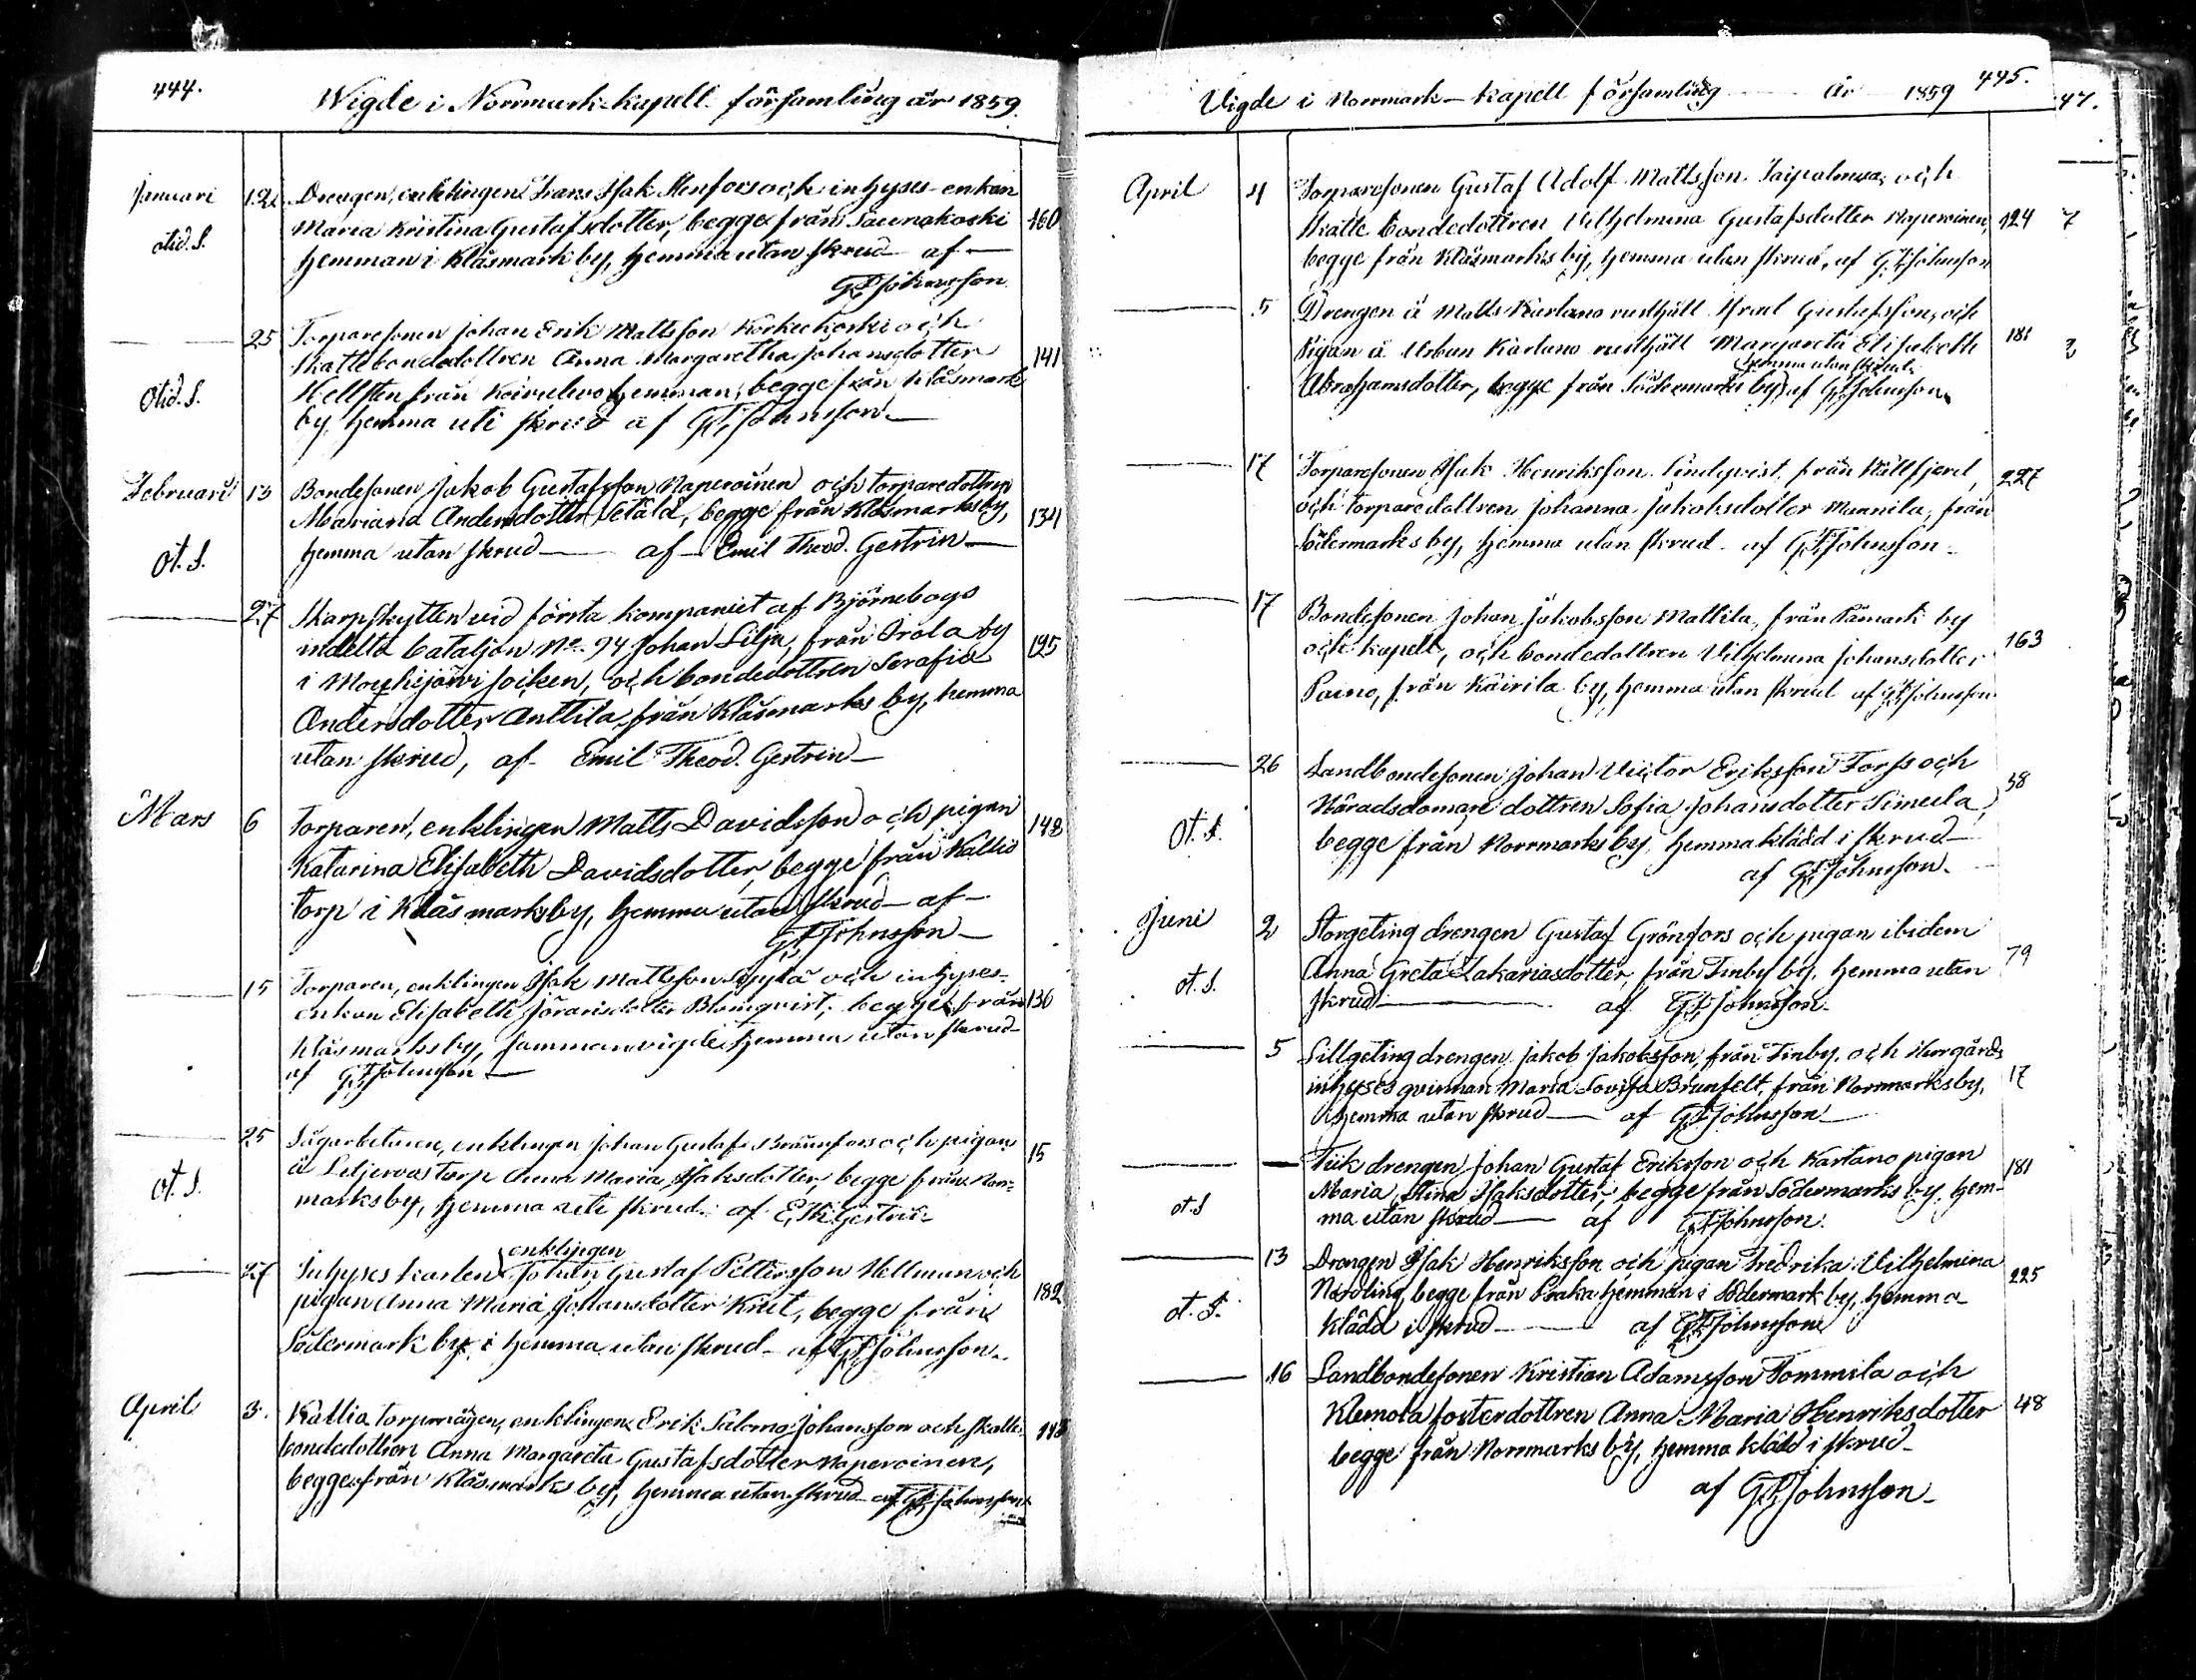 444.
Wigde i Norrmark kapell församling år 1859.
Januari 12. Drengen, enklingen Frans Isak Stenfors och inhyses-enkan
Maria Kristina Gustafsdotter, begge från 160
otid. S.
hemman i Klåsmark by, hemma utan skrud af
G F Johnsson
25 Torparesonen Johan Erik Mattsson Korkeekoski och
Skattebondedottren Anna Margaretha Johansdotter 141
Hellsten från hemman, begge från Klåsmark
Otid. S.
by hemma uti skrud af G F Johnsson
Februari 13 Bondesonen Jakob Gustafsson Naperoinen och torparedottren
Mariana Andersdotter begge från Klåsmarks by, 134
hemma utan skrud af Emil Theod. Gestrin
ot. S.
27 Skarpskytten vid första kompaniet af Björneborgs
indelta bataljon No 94 Johan Lilja, från by 125
i Mouhijärvi socken, och bondedottren Serafia
Andersdotter Anttila, från Klåsmarks by, hemma
utan skrud, af Emil Theod. Gestrin
Mars 6 Torparen, enklingen Matts Davidsson och pigan 148
Katarina Elisabeth Davidsdotter, begge från Kallio
torp i Klåsmarks by, hemma utan skrud af
G F Johnsson
15 Torparen, enklingen Isak Mattsson och inhyses-
enkan Elisabeth Blomqvist, begge från 136
Klåsmarks by, sammanvigde hemma utan skrud
af G F Johnsson
25 Sågarbetaren, enklingen Johan Gustaf Brännfors och pigan 15
å torp Anna Maria Isaksdotter begge från Norr-
ot. S.
marks by, hemma uti skrud af E. Th. Gestrin
enklingen
27 Inhyses karlen Johan Gustaf Pettersson Hellman och
pigan Anna Maria Johansdotter begge från 182
Södermark by, hemma utan skrud af G F Johnsson
April 3. Kallia enklingen Erik Salomo Johansson och skatte-
bondedottren Anna Margareta Gustafsdotter Naperoinen,
begge från Klåsmarks by, hemma utan skrud af G F Johnsson
Vigde i Norrmark kapell församling år 1859 445.
April 4 Torparesonen Gustaf Adolf Mattsson och
Skatte bondedottren Vilhelmina Gustafsdotter Naperoinen, 124
begge från Klåsmarks by, hemma utan skrud, af G F Johnsson
5 Drengen å Matts Kartano rusthåll Israel Gustafsson, och
Pigan å Urban Kartano rusthåll Margareta Elisabeth 181
hemma utan skrud
Abrahamsdotter, begge från Södermarks by af G F Johnsson
17 Torparesonen Isak Henriksson Lindqvist, från Hällfjerd, 227
och torparedottren Johanna Jakobsdotter från
Södermarks by, hemma utan skrud af G F Johnsson
17 Bondesonen Johan Jakobsson Mattila, från Påmark by
och kapell, och bondedottren Vilhelmina Johansdotter 163
Paino, från Käirilä by, hemma utan skrud af G F Johnsson
26 Landbondesonen Johan Victor Eriksson Forss och 38
Häradsdomare dottren Sofia Johansdotter Simula,
Ot. S.
begge från Norrmarks by hemma klädd i skrud
af G F Johnsson.
Juni 2 Storgeting drengen Gustaf Grönfors och pigan ibidem
Anna Greta Zakariasdotter, från Finby by, hemma utan 79
ot. S.
skrud af G F Johnsson
5 Lillgeting drengen Jakob Jakobsson, från Finby, och Herrgårds
inhyses qvinnan Maria Lovisa Brunfelt, från Norrmarks by, 17
hemma utan skrud af G F Johnsson
Tiik drengen Johan Gustaf Eriksson och Kartano pigan 181
Maria Stina Isaksdotter, begge från Södermarks by, hem-
ot. S
ma utan skrud af G F Johnsson.
13 Drengen Isak Henriksson och pigan Fredrika Vilhelmina 225
Nordling, begge från hemman i Södermark by, hemma
ot. S.
klädd i skrud af G F Johnsson
16 Landbondesonen Kristian Adamsson Tommila och
Klemola fosterdottren Anna Maria Henriksdotter 48
begge från Norrmarks by, hemma klädd i skrud
af G F Johnsson
47.
7
2